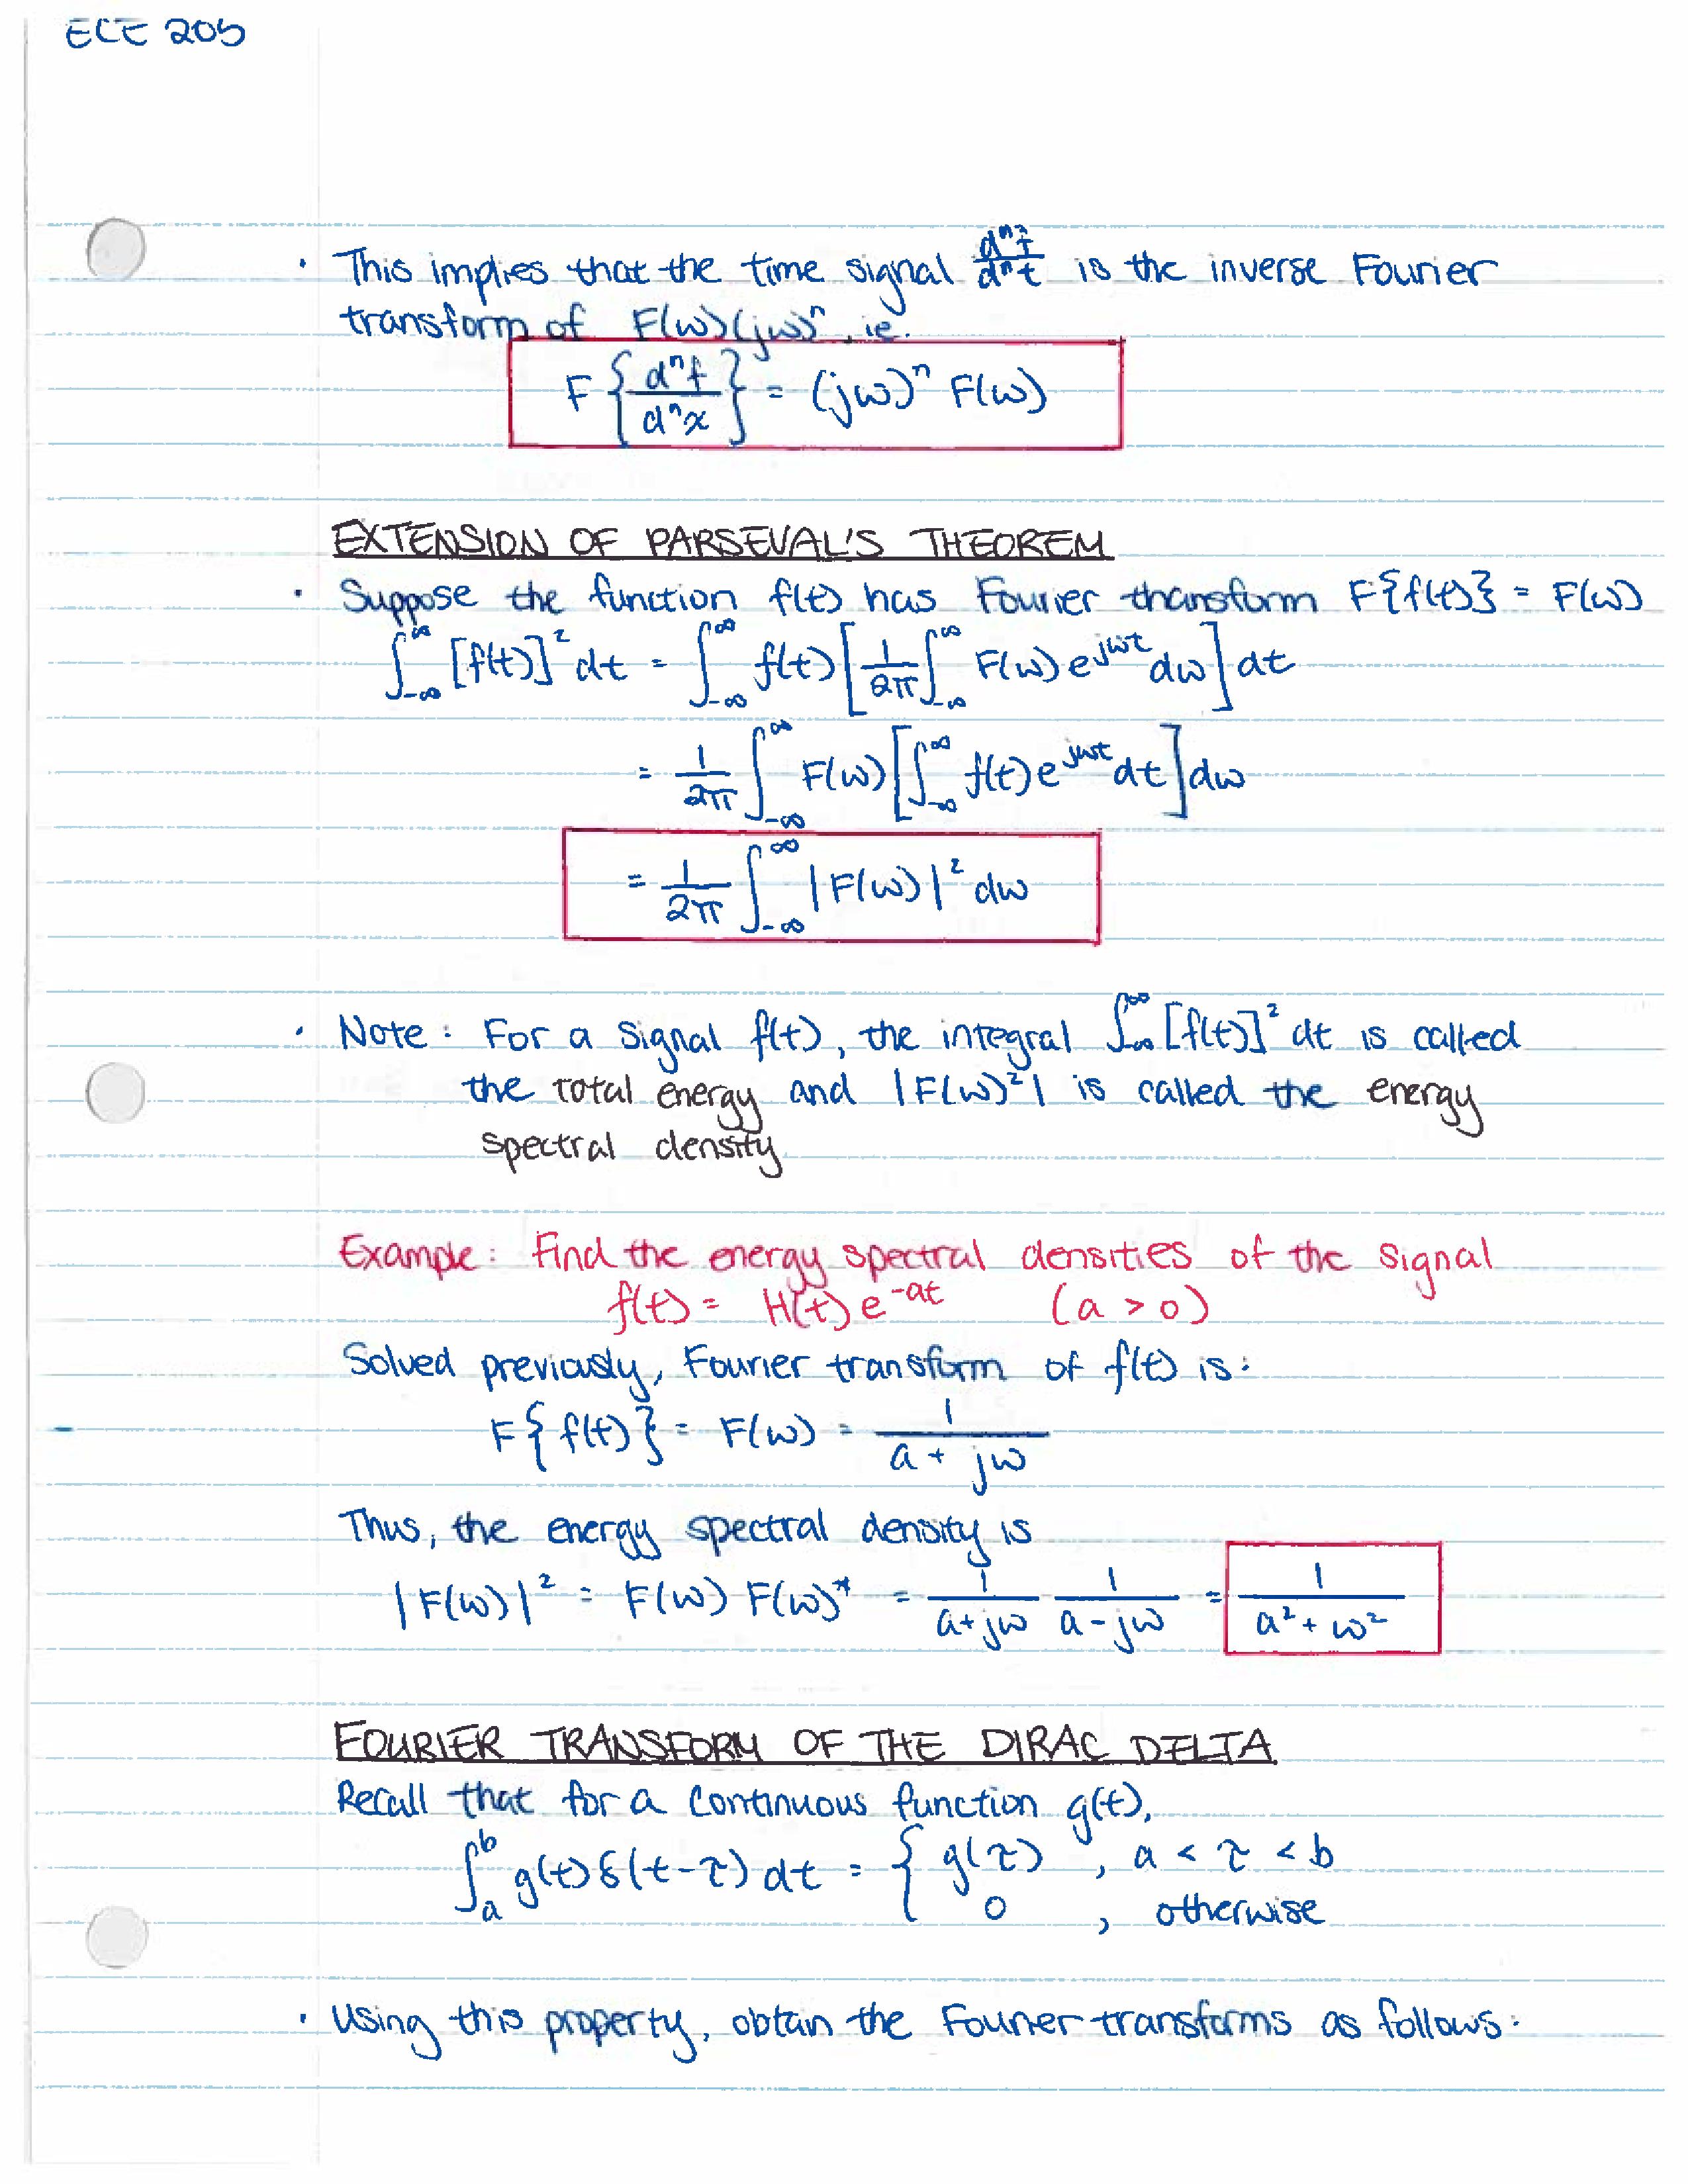 ECE 205
· This implies that the time signal dⁿf/dⁿt is the inverse Fourier
transform of F(ω)(jω)ⁿ, ie.
F{dⁿf/dⁿx} = (jω)ⁿ F(ω)
EXTENSION OF PARSEVAL'S THEOREM
· Suppose the function f(t) has Fourier transform F{f(t)} = F(ω)
∫_{-∞}^{∞} [f(t)]² dt = ∫_{-∞}^{∞} f(t) [1/2π ∫_{-∞}^{∞} F(ω) e^{jωt} dω] dt
= 1/2π ∫_{-∞}^{∞} F(ω) [∫_{-∞}^{∞} f(t) e^{jωt} dt] dω
= 1/2π ∫_{-∞}^{∞} |F(ω)|² dω
· Note: For a signal f(t), the integral ∫_{-∞}^{∞} [f(t)]² dt is called
the total energy and |F(ω)²| is called the energy
spectral density
Example: Find the energy spectral densities of the signal
f(t) = H(t) e^{-at} (a > 0)
Solved previously, Fourier transform of f(t) is:
F{f(t)} = F(ω) = 1/(a + jω)
Thus, the energy spectral density is
|F(ω)|² = F(ω) F(ω)* = 1/(a+jω) 1/(a-jω) = 1/(a² + ω²)
FOURIER TRANSFORM OF THE DIRAC DELTA
Recall that for a continuous function g(t),
∫_a^b g(t) δ(t-τ) dt = { g(τ) , a < τ < b
0 , otherwise
· Using this property, obtain the Fourier transforms as follows: